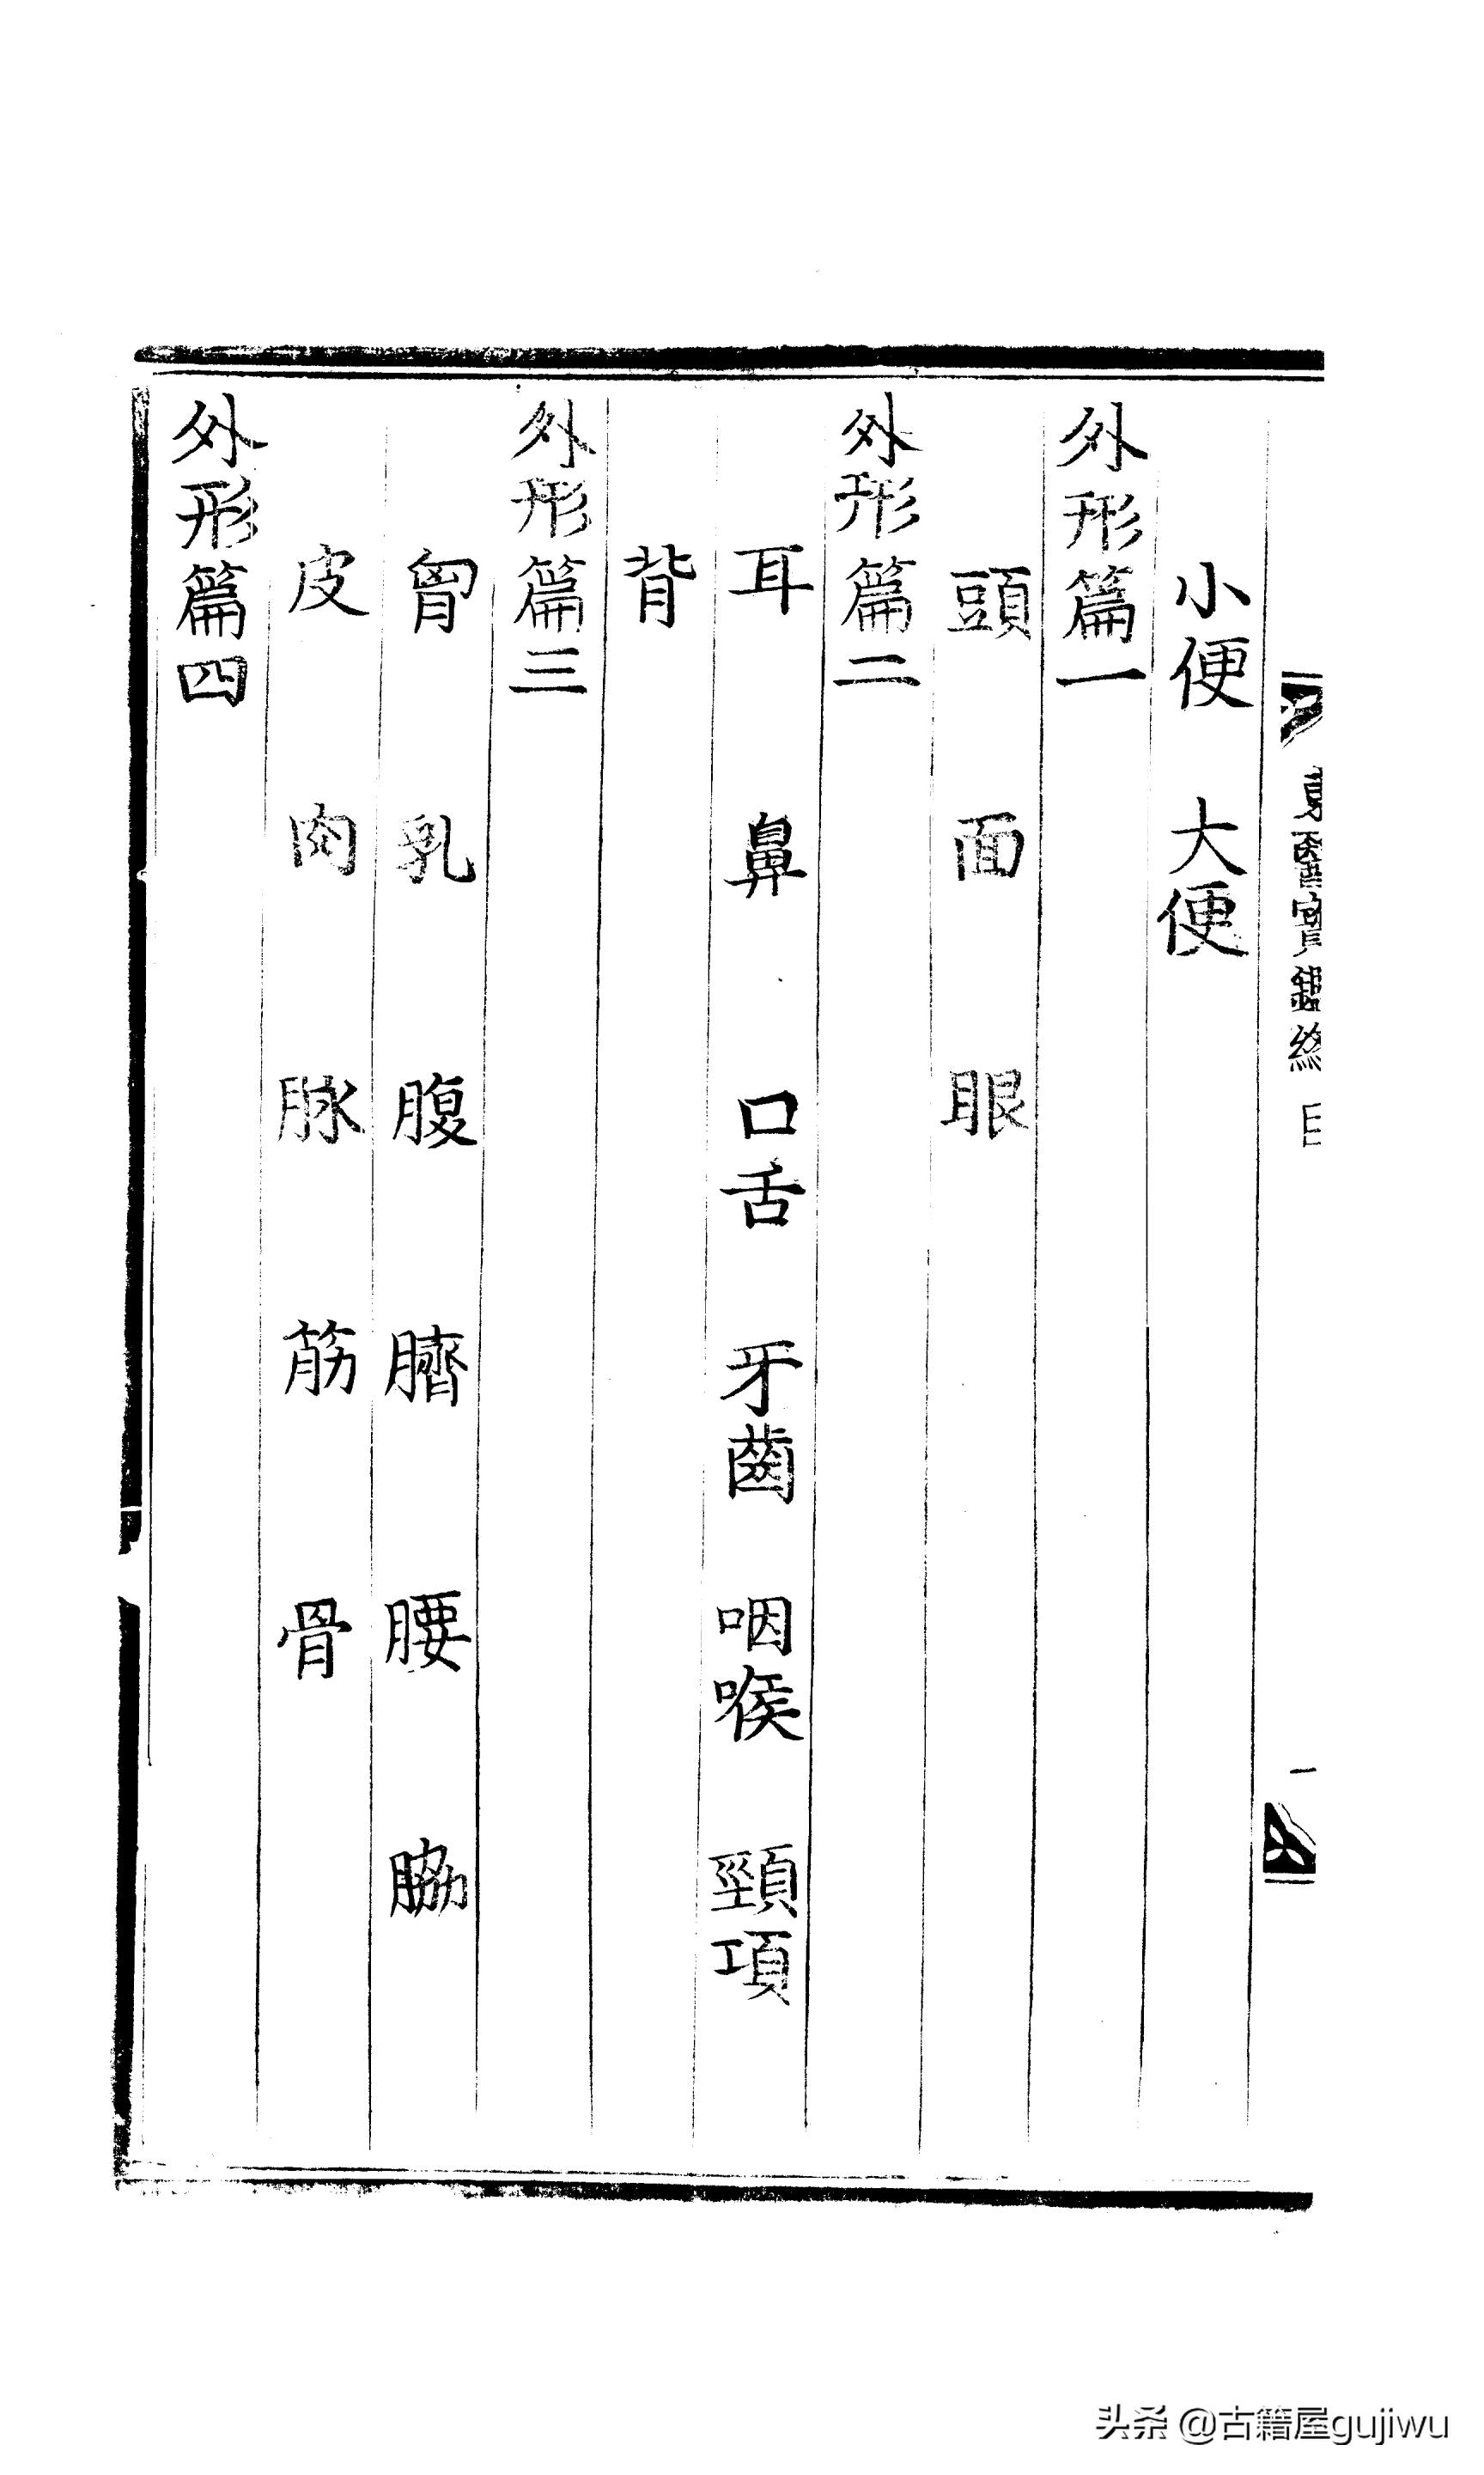 東醫寶鑑總目
一
小便　大便
外形篇一
頭　面　眼
外形篇二
耳　鼻　口舌　牙齒　咽喉　頸項
背
外形篇三
胷　乳　腹　臍　腰　脇
皮　肉　脉　筋　骨
外形篇四
头条 @古籍屋gujiwu